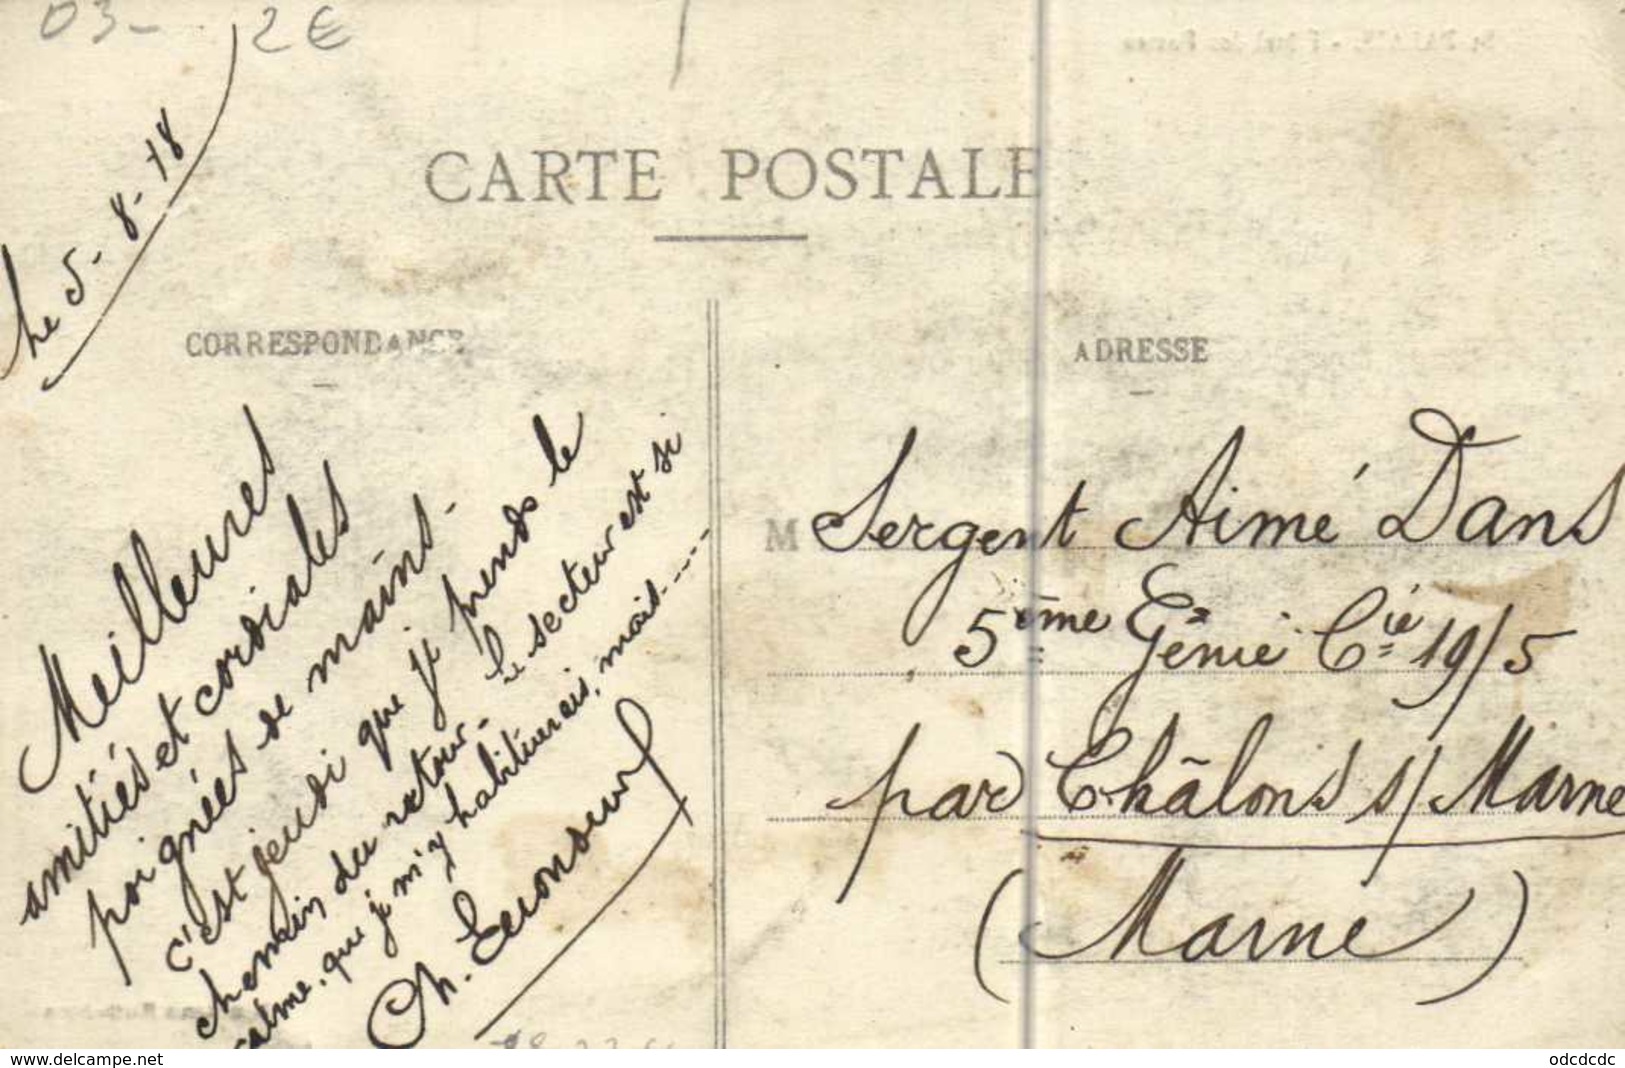 03- 2€
CARTE POSTALE
Le 5-8-18
CORRESPONDANCE
Meilleures
amitiés et cordiales
poignées de mains.-
c'est jeudi que je prends le
chemin du retour.- Le secteur est si
calme, que je m'y habituerais, mais.....
Ch.
ADRESSE
M Sergent Aimé Dans
5ème Génie Cie 19/5
par Châlons s/ Marne
(Marne)
www.delcampe.net
odcdcdc